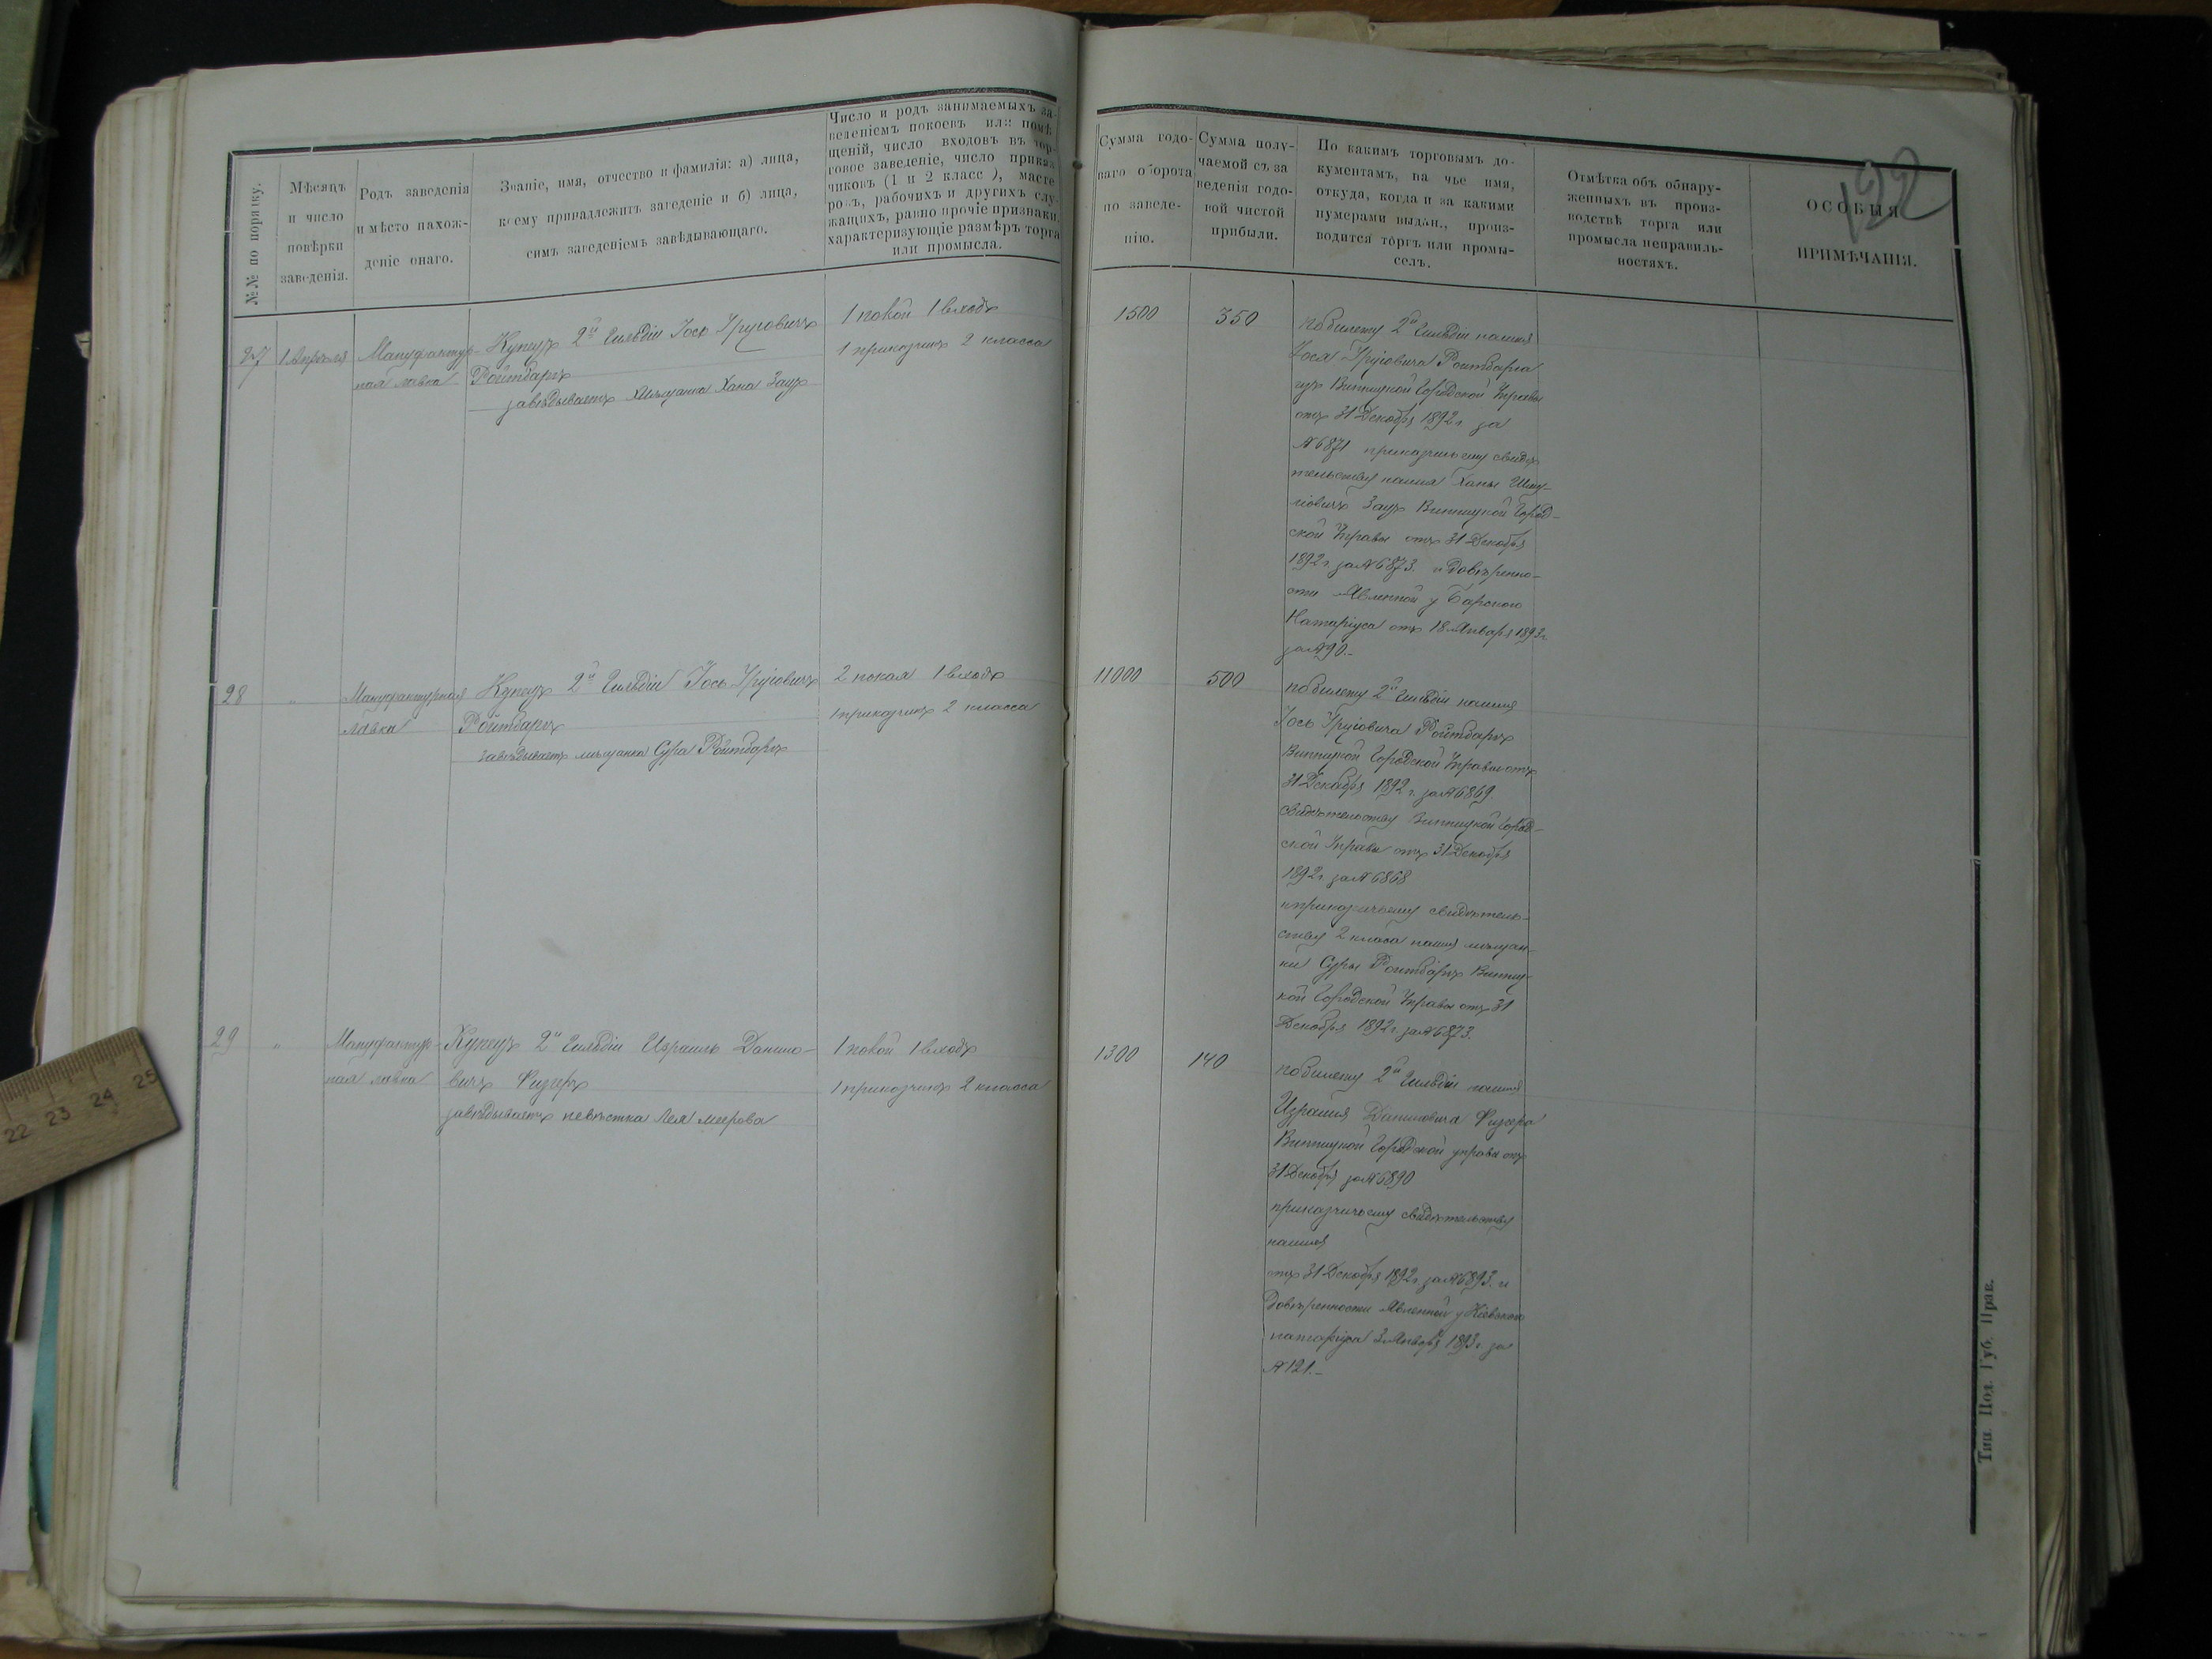 №№ по порядку.
Мѣсяцъ
и число
повѣрки
заведенія.
Родъ заведенія
и мѣсто нахож-
деніе онаго.
Званіе, имя, отчество и фамилія: а) лица,
коему принадлежитъ заведеніе и б) лица,
симъ заведеніемъ завѣдывающаго.
Число и родъ занимаемыхъ за-
веденіемъ покоевъ или помѣ
щеній, число входовъ въ тор-
говое заведеніе, число прикащ
чиковъ (1 и 2 класс ), масте
ровъ, рабочихъ и другихъ слу-
жащихъ, равно прочіе признаки,
характеризующіе размѣръ торга
или промысла.
Сумма годо-
ваго оборота
по заведе-
нію.
Сумма полу-
чаемой съ за
веденія годо-
вой чистой
прибыли.
По какимъ торговымъ до-
кументамъ, на чье имя,
откуда, когда и за какими
нумерами выдан., произ-
водится торгъ или промы-
селъ.
Отмѣтка объ обнару-
женныхъ въ произ-
водствѣ торга или
промысла неправиль-
ностяхъ.
ОСОБЫЯ
ПРИМѢЧАНІЯ.
192
27
1 Апрѣля
Мануфактур-
ная лавка
Купецъ 2й Гильдіи Іось
Ройтбаргъ
завѣдываетъ мѣщанка Хана Зацъ
1 покой 1 входъ
1 приказчикъ 2 класса
1500
350
по билету 2й Гильдіи на имя
Іося Ройтбарга
изъ Винницкой Городской Управы
отъ 31 Декабря 1892 г. за
№ 6871 приказчичьему свидѣ
тельству на имя Ханы
Зацъ Винницкой Город-
ской Управы отъ 31 Декабря
1892 г. за № 6873. и довѣренно-
сти явленной у Барского
Натаріуса отъ 18 Января 1893 г.
за № 90.-
28
"
Мануфактурная
лавка
Купецъ 2й Гильдіи Іось
Ройтбаргъ
завѣдываетъ мѣщанка Сура Ройтбаргъ
2 покая 1 входъ
1 приказчикъ 2 класса
11000
500
по билету 2й Гильдіи на имя
Іось Ройтбаргъ
Винницкой Городской Управы отъ
31 Декабря 1892 г. за № 6869.
свидѣтельству Винницкой Город-
ской Управы отъ 31 Декабря
1892 г. за № 6868
и приказчичьему свидѣтель-
ству 2 класа на имя мѣщан-
ки Суры Ройтбаргъ Винниц-
кой Городской Управы отъ 31
Декабря 1892 г. за № 6873.
29
"
Мануфактур-
ная лавка
Купецъ 2й Гильдіи Израиль Данило-
вичъ Фиднеръ
завѣдываетъ невѣстка Лея Меерова
1 покой 1 входъ
1 приказчикъ 2 класса
1300
140
по билету 2й Гильдіи на имя
Израиля Даниловича
Винницкой Городской управы отъ
31 Декабря за № 6890
приказчичьему свидѣтельству
на имя
отъ 31 Декабря 1892 г. за № 6893. и
Довѣренности явленной у Кіевского
натаріуса 3 Января 1893 г. за
№ 121.-
Тип. Под. Губ. Прав.
22 23 24 25